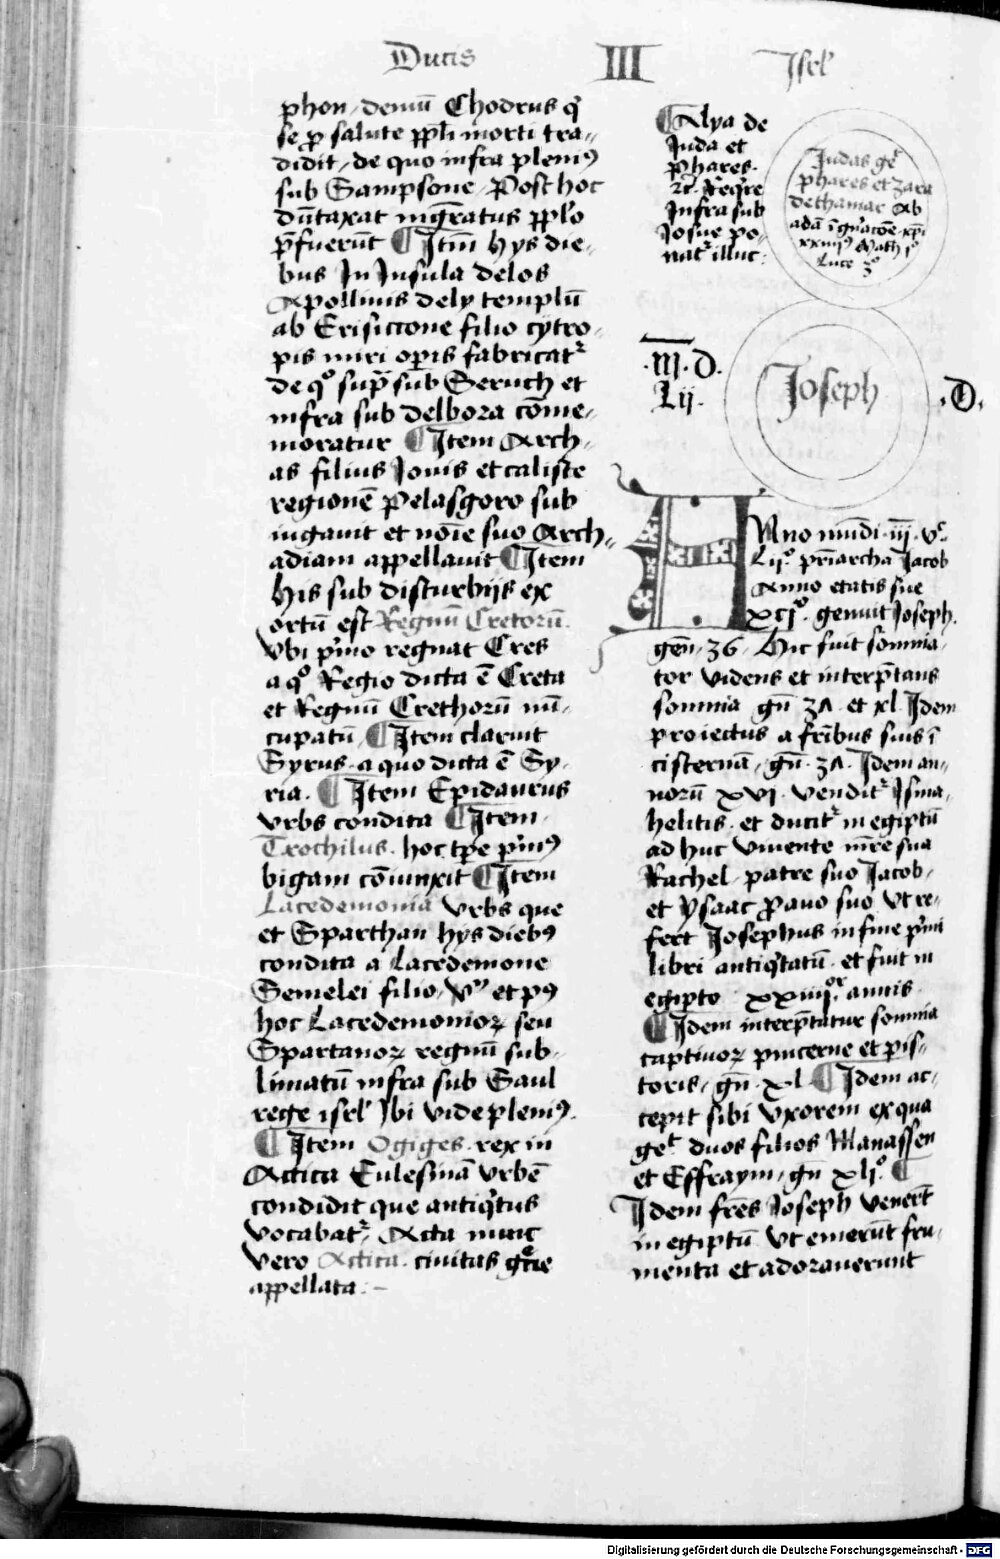 Ducis III Isrl'
phon, demū Chodrus qͥ
se ꝓ salute ppl̄i morti tra-
didit, de quo infra pleniꝰ
sub Sampsone. Post hoc
dūtaxat ppl'o
p̄fuerūt ¶ Itm̄ hys die-
bus In Insula delos
Apollinis dely templū
ab Erisictone filio cytro-
pis miri opis fabricatᷣ
de qͦ sup̄ sub Seruch et
infra sub delbora cōme-
moratur ¶ Item Arch-
as filius Iouis et caliste
regionē Pelasgoro sub
iugauit et noīe suo Arch-
adiam appellauit ¶ Item
his sub disturbijs ex
ortū est Regnū Cretorū.
Vbi pͥmo regnat Cres
a qͦ Regio dicta ē Creta
et Regnū Crethorū nū-
cupatū. ¶ Item claruit
Syrus. a quo dicta ē Sy-
ria. ¶ Item Epidaurus
vrbs condita ¶ Item
Trochilus. hoc tp̄e pͥmꝰ
bigam cōiunxit ¶ Item
Lacedemonia vrbs que
et Sparthan hys diebꝰ
condita a Lacedemone
Semelei filio, et pꝰ
hoc Lacedemonioꝝ seu
Spartanoꝝ regnū sub-
limatū infra sub Saul
rege isrl' Ibi vide pleniꝰ.
¶ Item Ogiges. rex in
Actica Eulesinā vrbē
condidit que antiqͥtus
vocabatᷣ. Acta nunc
vero Actica. ciuitas
appellata.
¶ Alya de
Iuda et
Phares.
⁊c̄. Reqͥre
Infra sub
Iosue po-
natᷣ illuc.
Iudas geᷣ
phares et zara
de thamar Ab
adā ī gn̄acōe xp̄i
xxiiijꝰ Math jͦ
Luce 3ͦ
.III. D.
Lij.
Joseph
.D.
Anno mūdi iij. vͨ.
Lijͦ. pr̄iarcha Iacob
Anno etatis sue
xcjͦ. genuit Ioseph.
gen̄. 36. Hic fuit somnia-
tor videns et interp̄tans
somnia gn̄ 37. et xl. Idem
proiectus a fr̄ibus suis ī
cisternā. gn̄. 37. Idem an-
norū xvi. venditᷣ Isma-
helitis. et ducitᷣ in egiptū
ad huc viuente mr̄e sua
Rachel. patre suo Iacob.
et ysaac ꝓauo suo vt re-
fert Iosephus in fine pͥmi
libri antiqͥtatū. et fuit in
egipto xxiiijͦʳ. annis.
¶ Idem interp̄tatur somnia
captiuoꝝ pincerne et pis-
toris. gn̄. xl. ¶ Idem ac-
cepit sibi vxorem ex qua
geᵗ duos filios Manassen
et Effraym. gn̄ xljͦ. ¶
Idem fr̄es Ioseph venerūt
in egiptū vt emerūt fru-
menta et adorauerunt
Digitalisierung gefördert durch die Deutsche Forschungsgemeinschaft - DFG